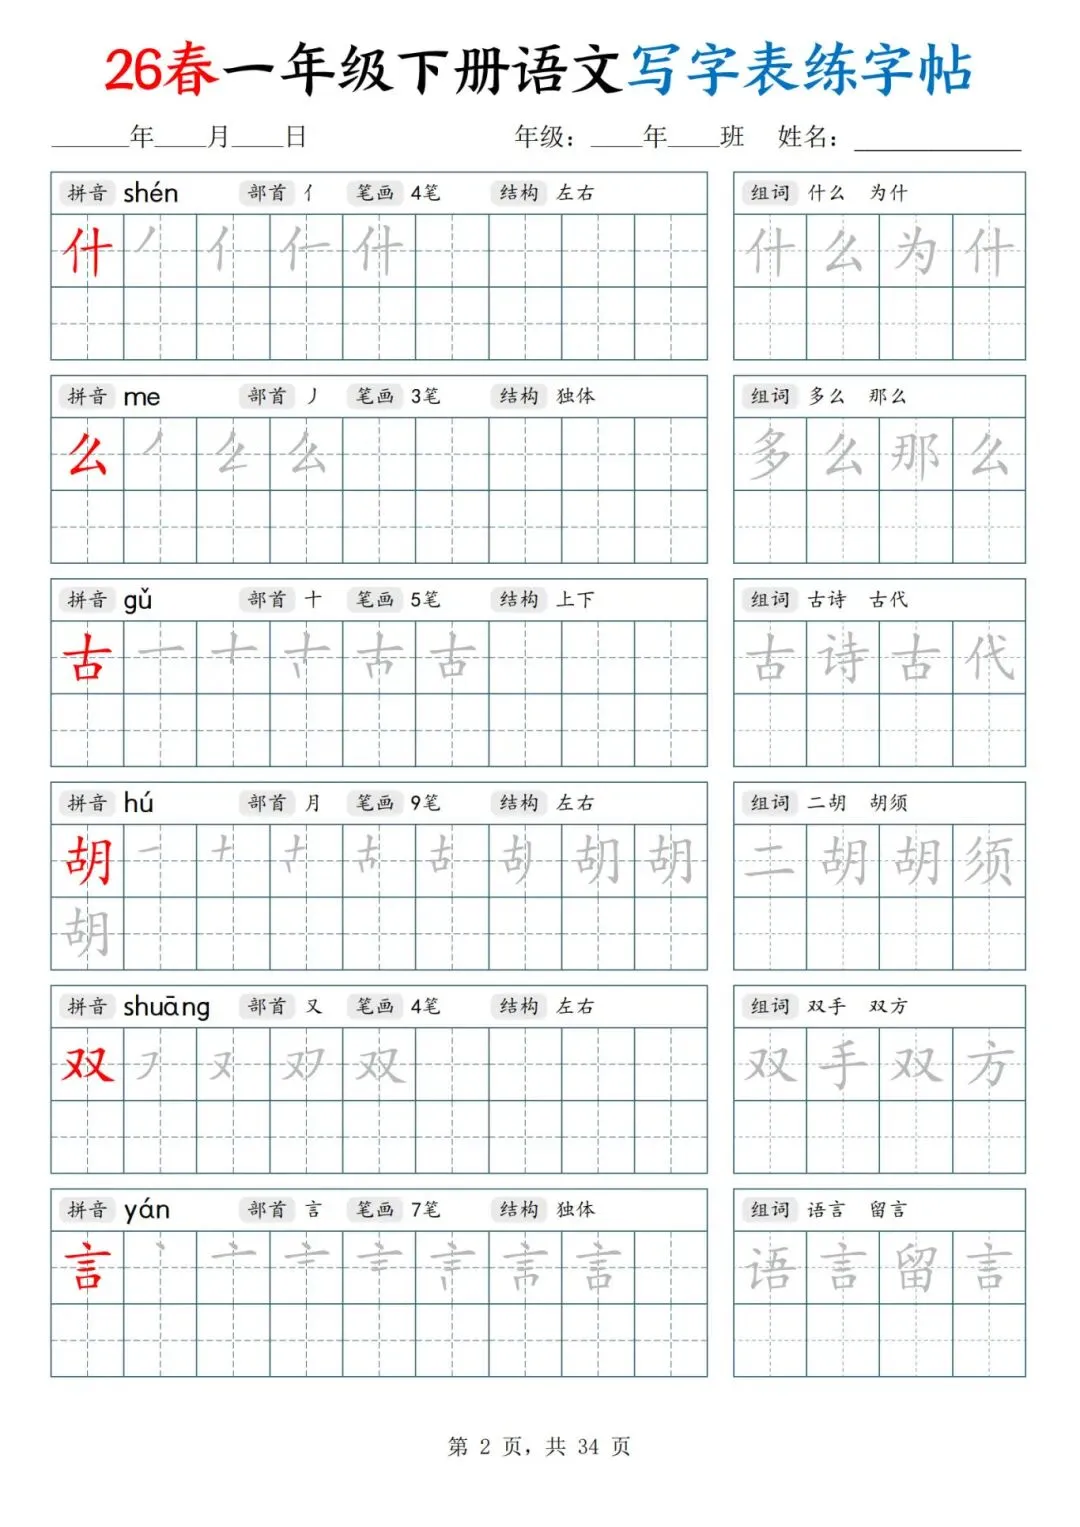 26春一年级下册语文写字表练字帖
______年____月____日 年级：____年____班 姓名：_____________
拼音 shén 部首 亻 笔画 4笔 结构 左右 组词 什么 为什
什 丿 亻 仁 什 什 么 为 什
拼音 me 部首 丿 笔画 3笔 结构 独体 组词 多么 那么
么 丿 么 多 么 那 么
拼音 gǔ 部首 十 笔画 5笔 结构 上下 组词 古诗 古代
古 一 十 古 古 诗 古 代
拼音 hú 部首 月 笔画 9笔 结构 左右 组词 二胡 胡须
胡 一 十 古 胡 二 胡 胡 须
胡
拼音 shuāng 部首 又 笔画 4笔 结构 左右 组词 双手 双方
双 又 双 双 手 双 方
拼音 yán 部首 言 笔画 7笔 结构 独体 组词 语言 留言
言 丶 亠 言 语 言 留 言
第 2 页，共 34 页